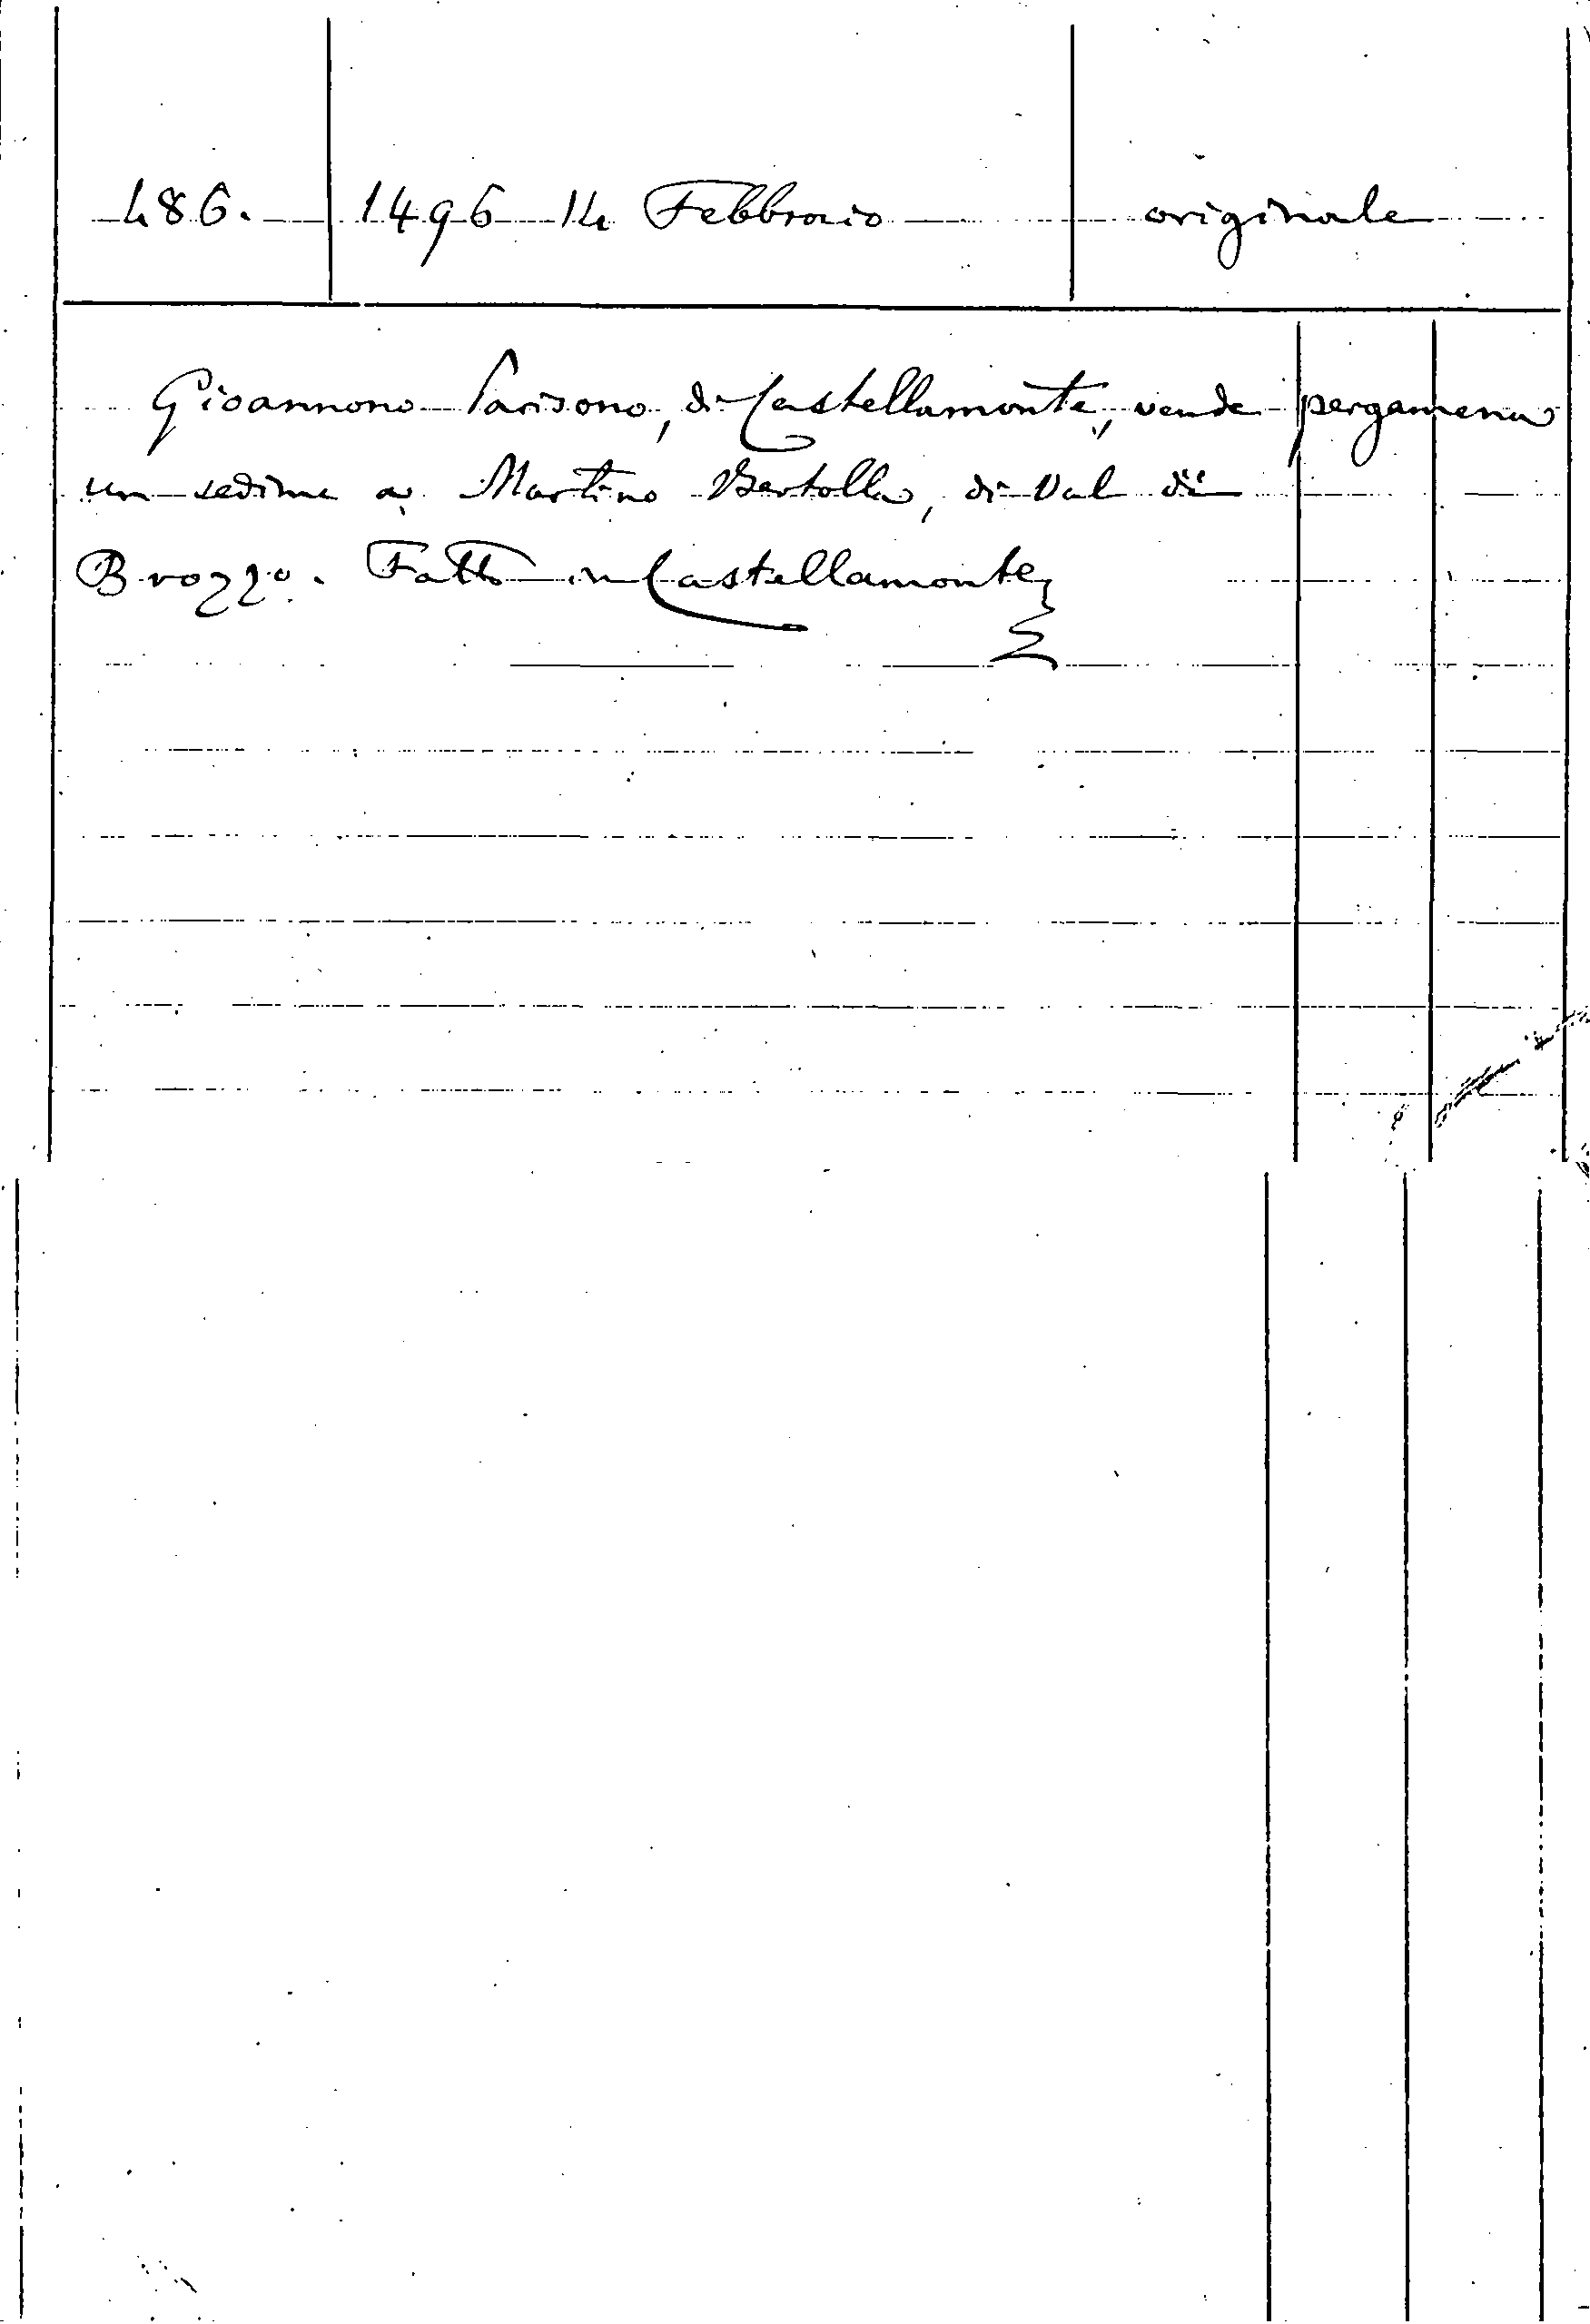 486. 1496 14 Febbraio originale
Gioannono Parisono, di Castellamonte, vende pergamena
un sedime a Martino Bertolla, di Val di
Brozzo. Fatto in Castellamonte